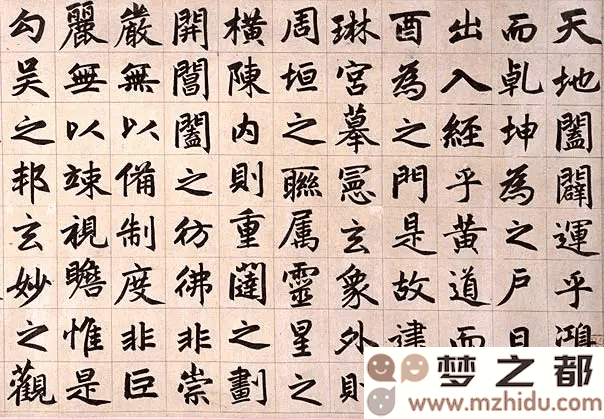 天地闔闢運乎鴻
而乹坤為之戶日
出入經乎黃道而
酉為之門是故建
琳宮摹憲玄象外則
周垣之聯属靈星之
橫陳内則重闥之劃
開閶闔之彷彿非崇
嚴無以備制度非巨
麗無以竦視瞻惟是
勾吴之邦玄妙之觀
梦之都
www.mzhidu.com